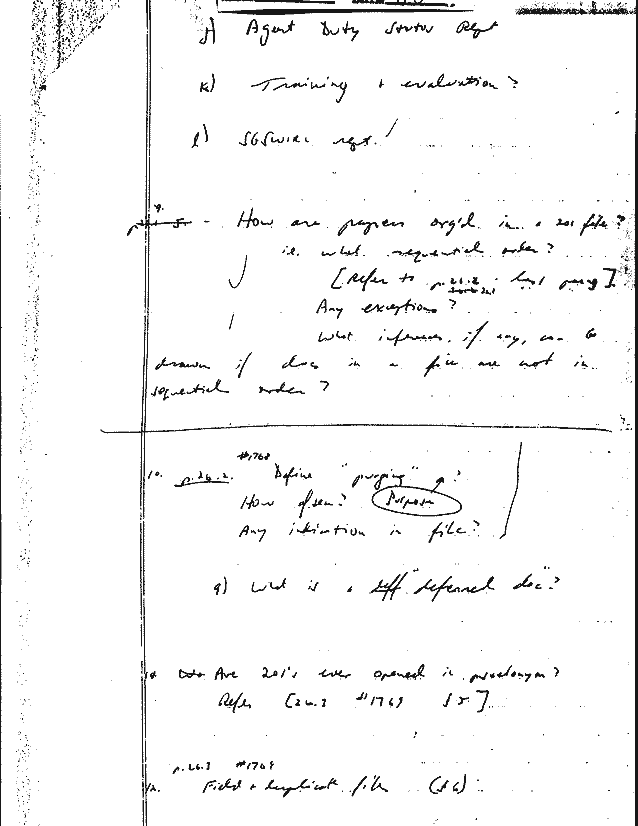 j) Agent Duty Status Rept
k) Training + evaluation?
l) rept.
9.
- How are papers org'd in a 201 file?
i.e. what sequential order?
[Refer to p. 26.2 last]
Any exceptions?
What inferences, if any, can be
drawn if docs in a file are not in
sequential order?
#1768
10. p.26.2. Define "purging"?
How often? Purpose
Any indication in file?
a) What is a "deferred doc"?
Are 201's ever opened in pseudonym?
Refer [26.3 #1769 ]
p.26.3 #1769
12. Field + duplicate file